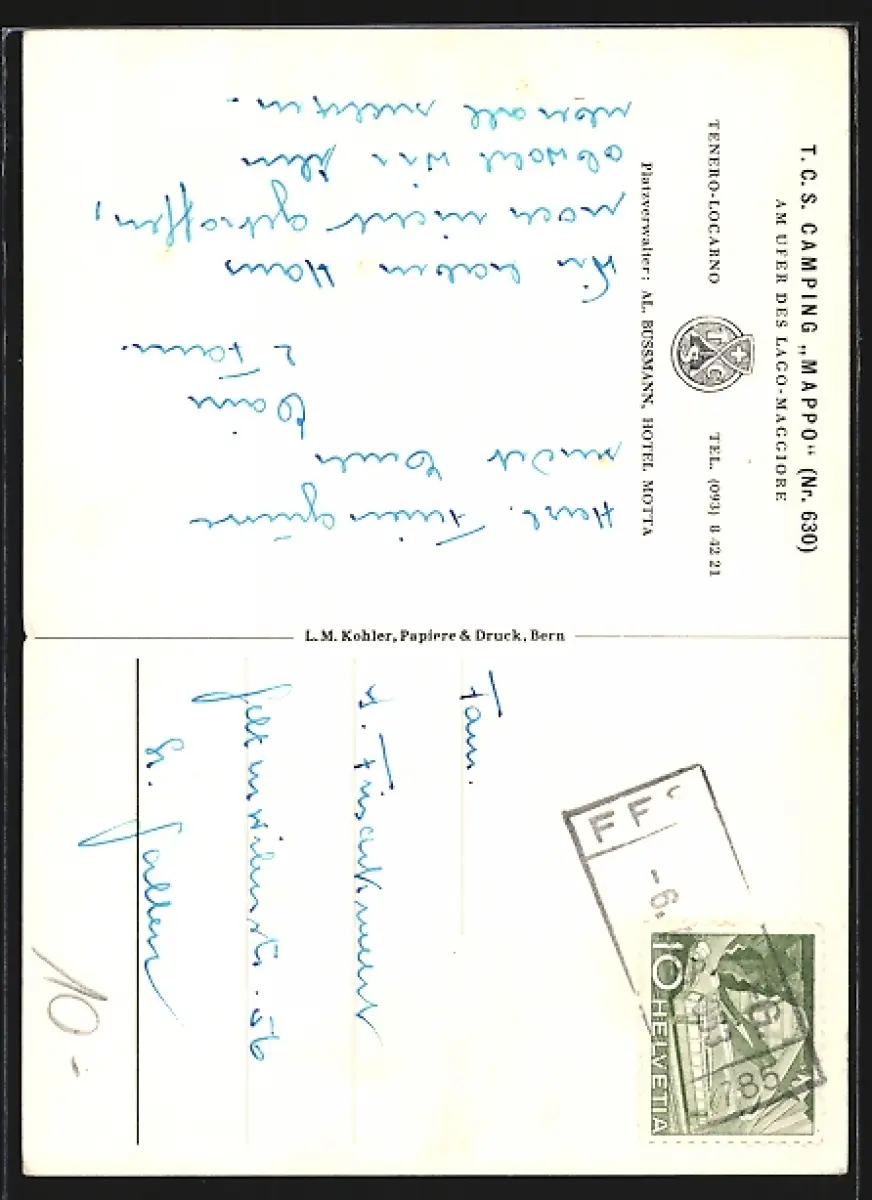 T. C. S. CAMPING „MAPPO“ (Nr. 630)
AM UFER DES LAGO-MAGGIORE
TENERO-LOCARNO
TCS
TEL. (093) 8 42 21
Platzverwalter: AL. BUSSMANN, HOTEL MOTTA
Wir haben Hans
noch nicht getroffen,
obwohl wir ihn
überall suchten.
Herzl. Feriengrüsse
sendet Euch
& Fam.
L. M. Kohler, Papiere & Druck, Bern
Fam.
Frischknecht
56
St. Gallen
FF
-6.
785
10
HELVETIA
10.-